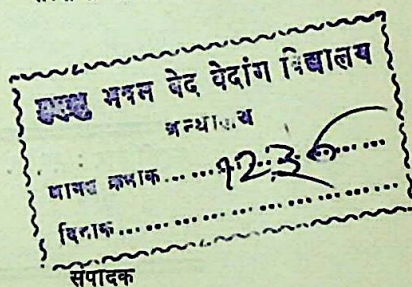 भवन वेद वेदांग विद्यालय
ग्रन्थालय
आगत क्रमांक ...... 1230 ......
दिनांक ......
संपादक